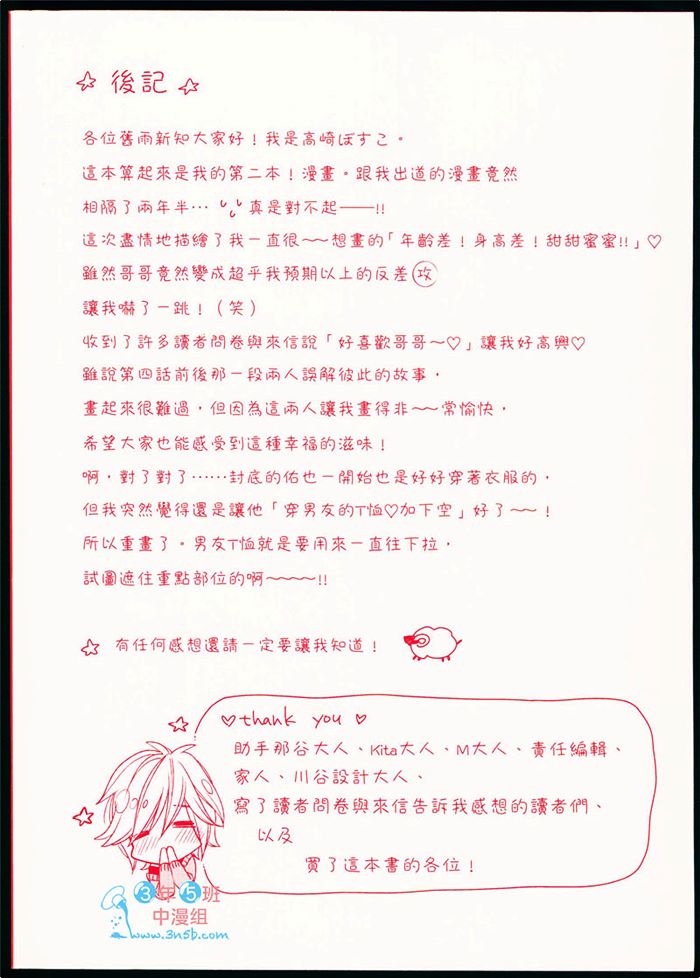 ☆ 後記 ☆
各位舊雨新知大家好！我是高崎ぼすこ。
這本算起來是我的第二本！漫畫。跟我出道的漫畫竟然
相隔了兩年半… 真是對不起——!!
這次盡情地描繪了我一直很～～想畫的「年齡差！身高差！甜甜蜜蜜!!」♡
雖然哥哥竟然變成超乎我預期以上的反差攻
讓我嚇了一跳！（笑）
收到了許多讀者問卷與來信說「好喜歡哥哥～♡」讓我好高興♡
雖說第四話前後那一段兩人誤解彼此的故事，
畫起來很難過，但因為這兩人讓我畫得非～～常愉快，
希望大家也能感受到這種幸福的滋味！
啊，對了對了……封底的佑也一開始也是好好穿著衣服的，
但我突然覺得還是讓他「穿男友的T恤♡加下空」好了～～！
所以重畫了。男友T恤就是要用來一直往下拉，
試圖遮住重點部位的啊～～～～!!
☆ 有任何感想還請一定要讓我知道！
♡thank you ♡
助手那谷大人、Kita大人、M大人、責任編輯、
家人、川谷設計大人、
寫了讀者問卷與來信告訴我感想的讀者們、
以及
買了這本書的各位！
3年5班
中漫組
www.3n5b.com